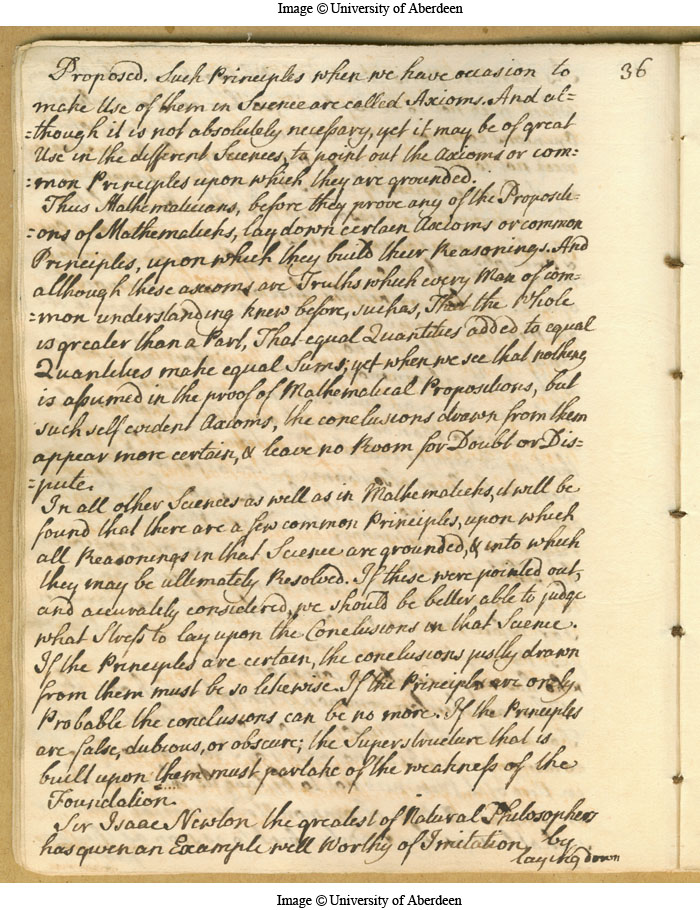 Image © University of Aberdeen
36
Proposed. Such Principles when we have occasion to
make Use of them in Science are called Axioms. And al=
=though it is not absolutely necessary, yet it may be of great
Use in the different Sciences, to point out the Axioms or com=
=mon Principles upon which they are grounded.
Thus Mathematicians, before they prove any of the Propositi=
=ons of Mathematicks, lay down certain Axioms or common
Principles, upon which they build their Reasonings. And
although these axioms are Truths which every Man of com=
=mon understanding knew before, such as, That the Whole
is greater than a Part, That equal Quantities added to equal
Quantities make equal Sums; yet when we see that nothing
is assumed in the proof of Mathematical Propositions, but
such self evident Axioms, the conclusions drawn from them
appear more certain, & leave no Room for Doubt or Dis=
=pute.
In all other Sciences as well as in Mathematicks, it will be
found that there are a few common Principles, upon which
all Reasonings in that Science are grounded, & into which
they may be ultimately Resolved. If these were pointed out,
and accurately considered, we should be better able to judge
what Stress to lay upon the Conclusions in that Science.
If the Principles are certain, the conclusions justly drawn
from them must be so likewise. If the Principles are only
Probable the conclusions can be no more. If the Principles
are false, dubious, or obscure; the Superstructure that is
built upon them must partake of the weakness of the
Foundation.
Sir Isaac Newton the greatest of Natural Philosophers
has given an Example well Worthy of Imitation, by
laying down
Image © University of Aberdeen